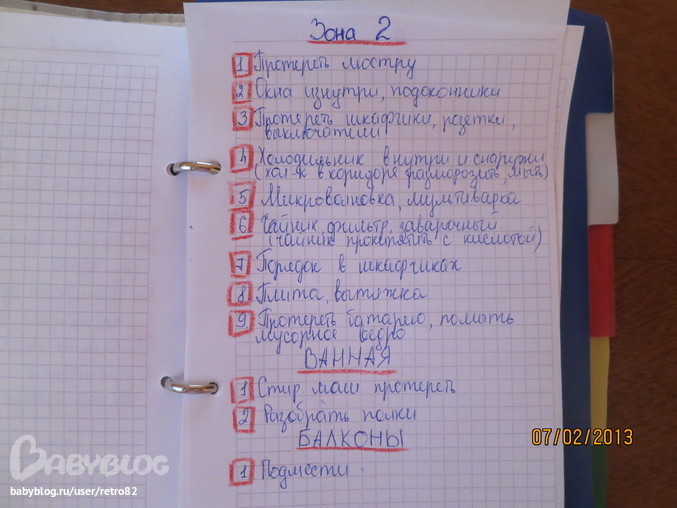 Зона 2
1 Протереть люстру
2 Окна изнутри, подоконники
3 Протереть шкафчики, розетки,
выключатели
4 Холодильник внутри и снаружи
(хол-к в коридоре разморозить, мыть)
5 Микроволновка, мультиварка
6 Чайник, фильтр, заварочный
(чайник прокипятить с кислотой)
7 Порядок в шкафчиках
8 Плита, вытяжка
9 Протереть батарею, помыть
мусорное ведро
ВАННАЯ
1 Стир маш протереть
2 Разобрать полки
БАЛКОНЫ
1 Подмести
07/02/2013
BABYBLOG
babyblog.ru/user/retro82